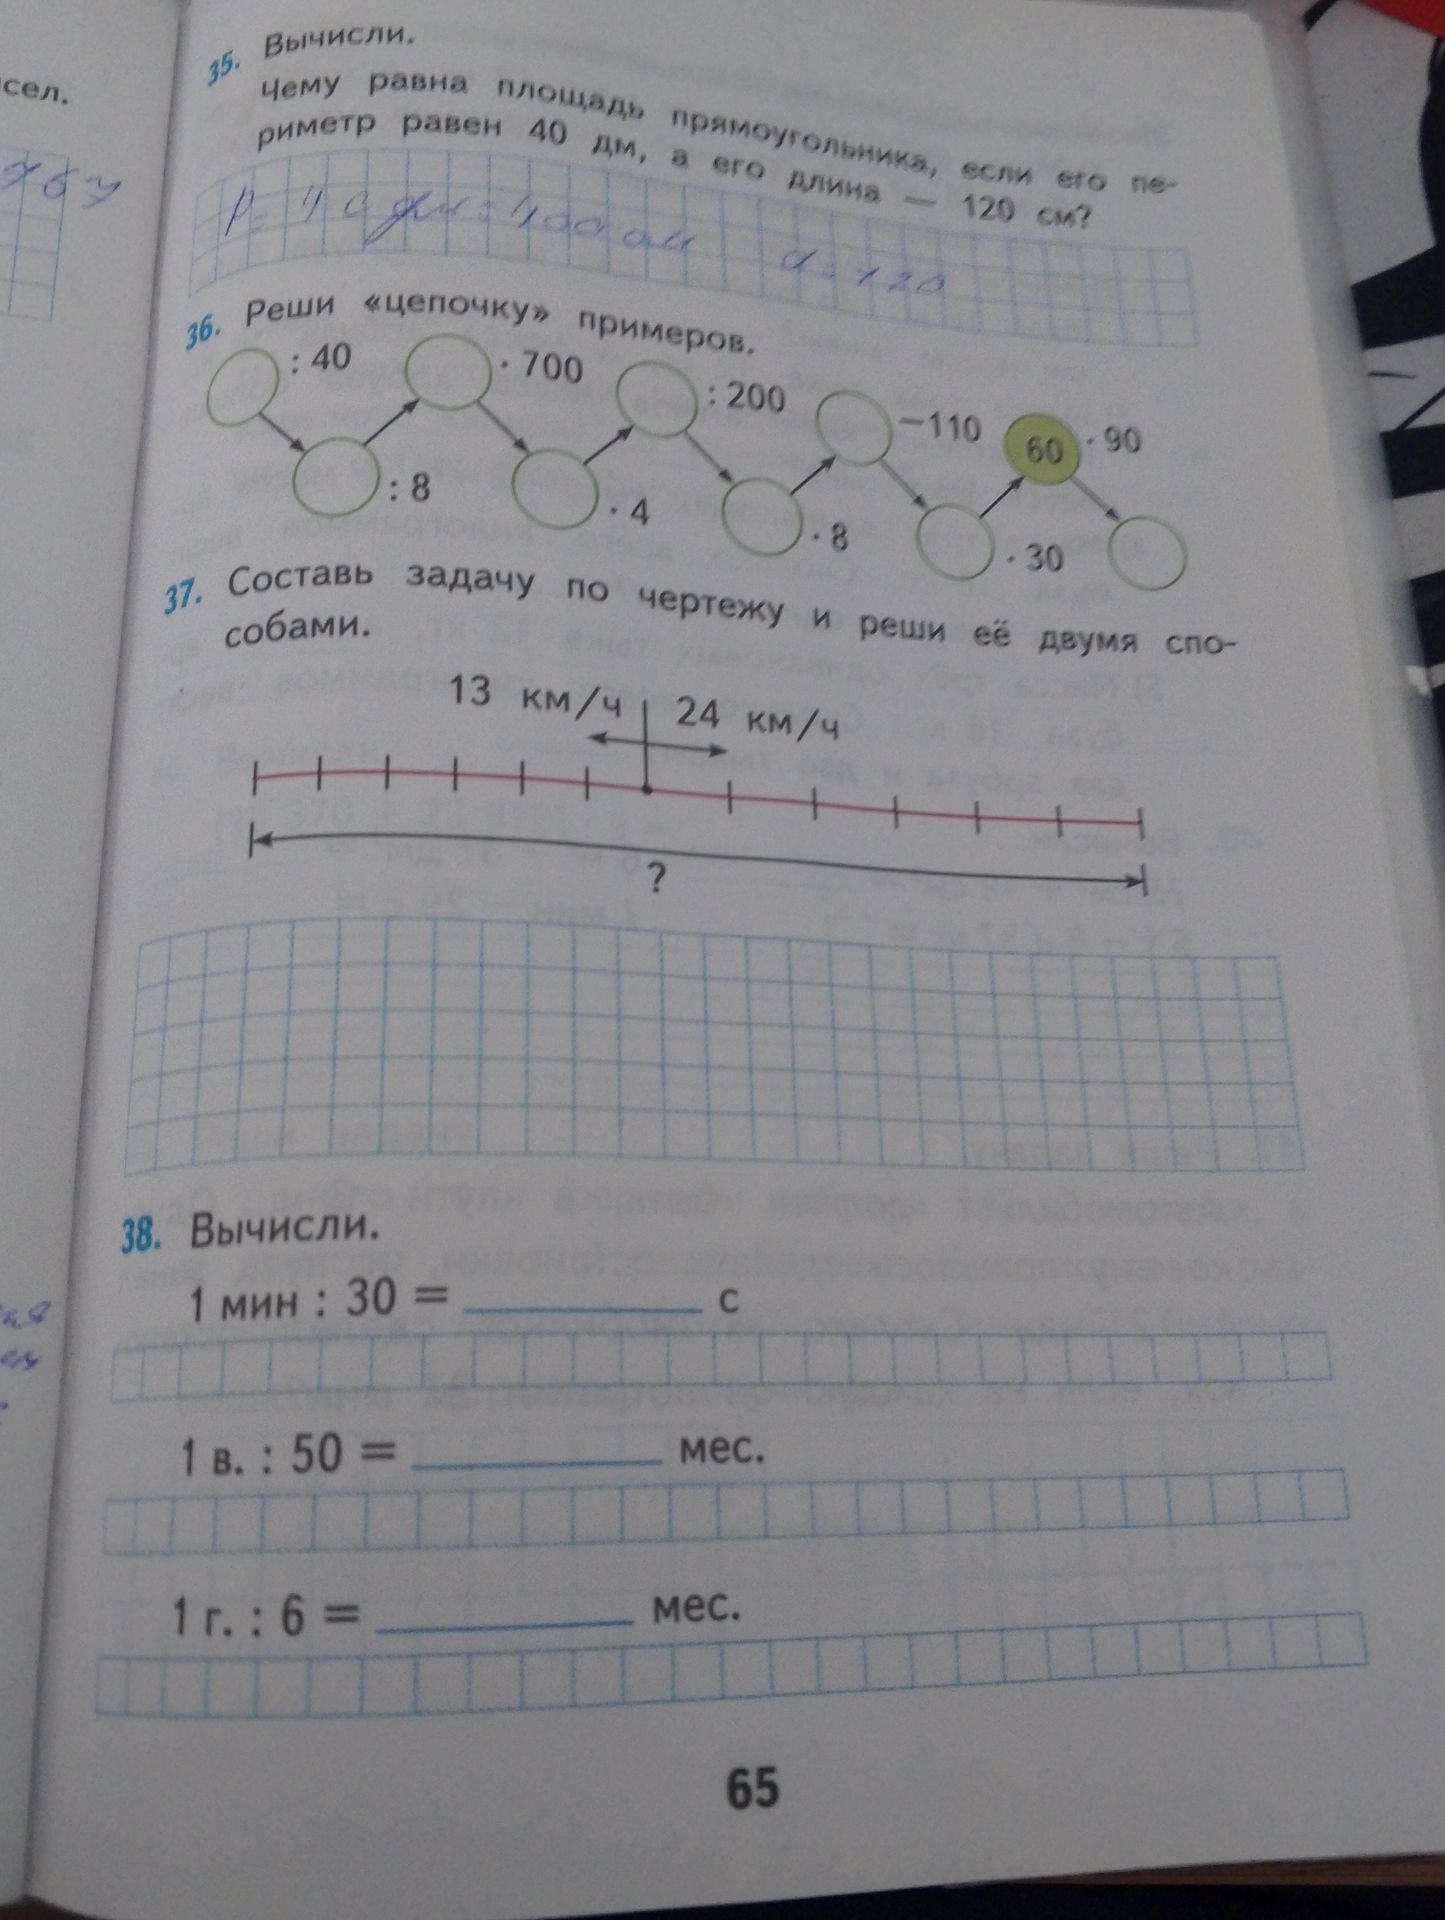 сел.
35. Вычисли.
Чему равна площадь прямоугольника, если его пе-
риметр равен 40 дм, а его длина — 120 см?
P= 40 дм = 400 см а = 120
36. Реши «цепочку» примеров.
: 40 · 700 : 200 −110 60 · 90
: 8 · 4 · 8 · 30
37. Составь задачу по чертежу и реши её двумя спо-
собами.
13 км/ч 24 км/ч
?
38. Вычисли.
1 мин : 30 = с
1 в. : 50 = мес.
1 г. : 6 = мес.
65